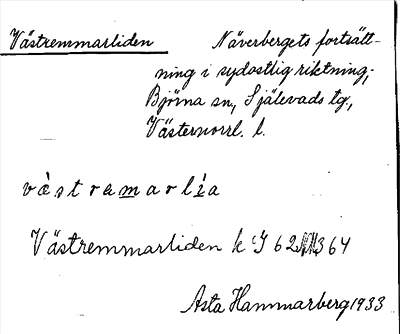 Västremmarliden Näverbergets fortsätt-
ning i sydostlig riktning;
Björna sn, Själevads tg.,
Västernorrl. l.
vàstramarlìa
Västremmarliden k 62 364
Asta Hammarberg 1933